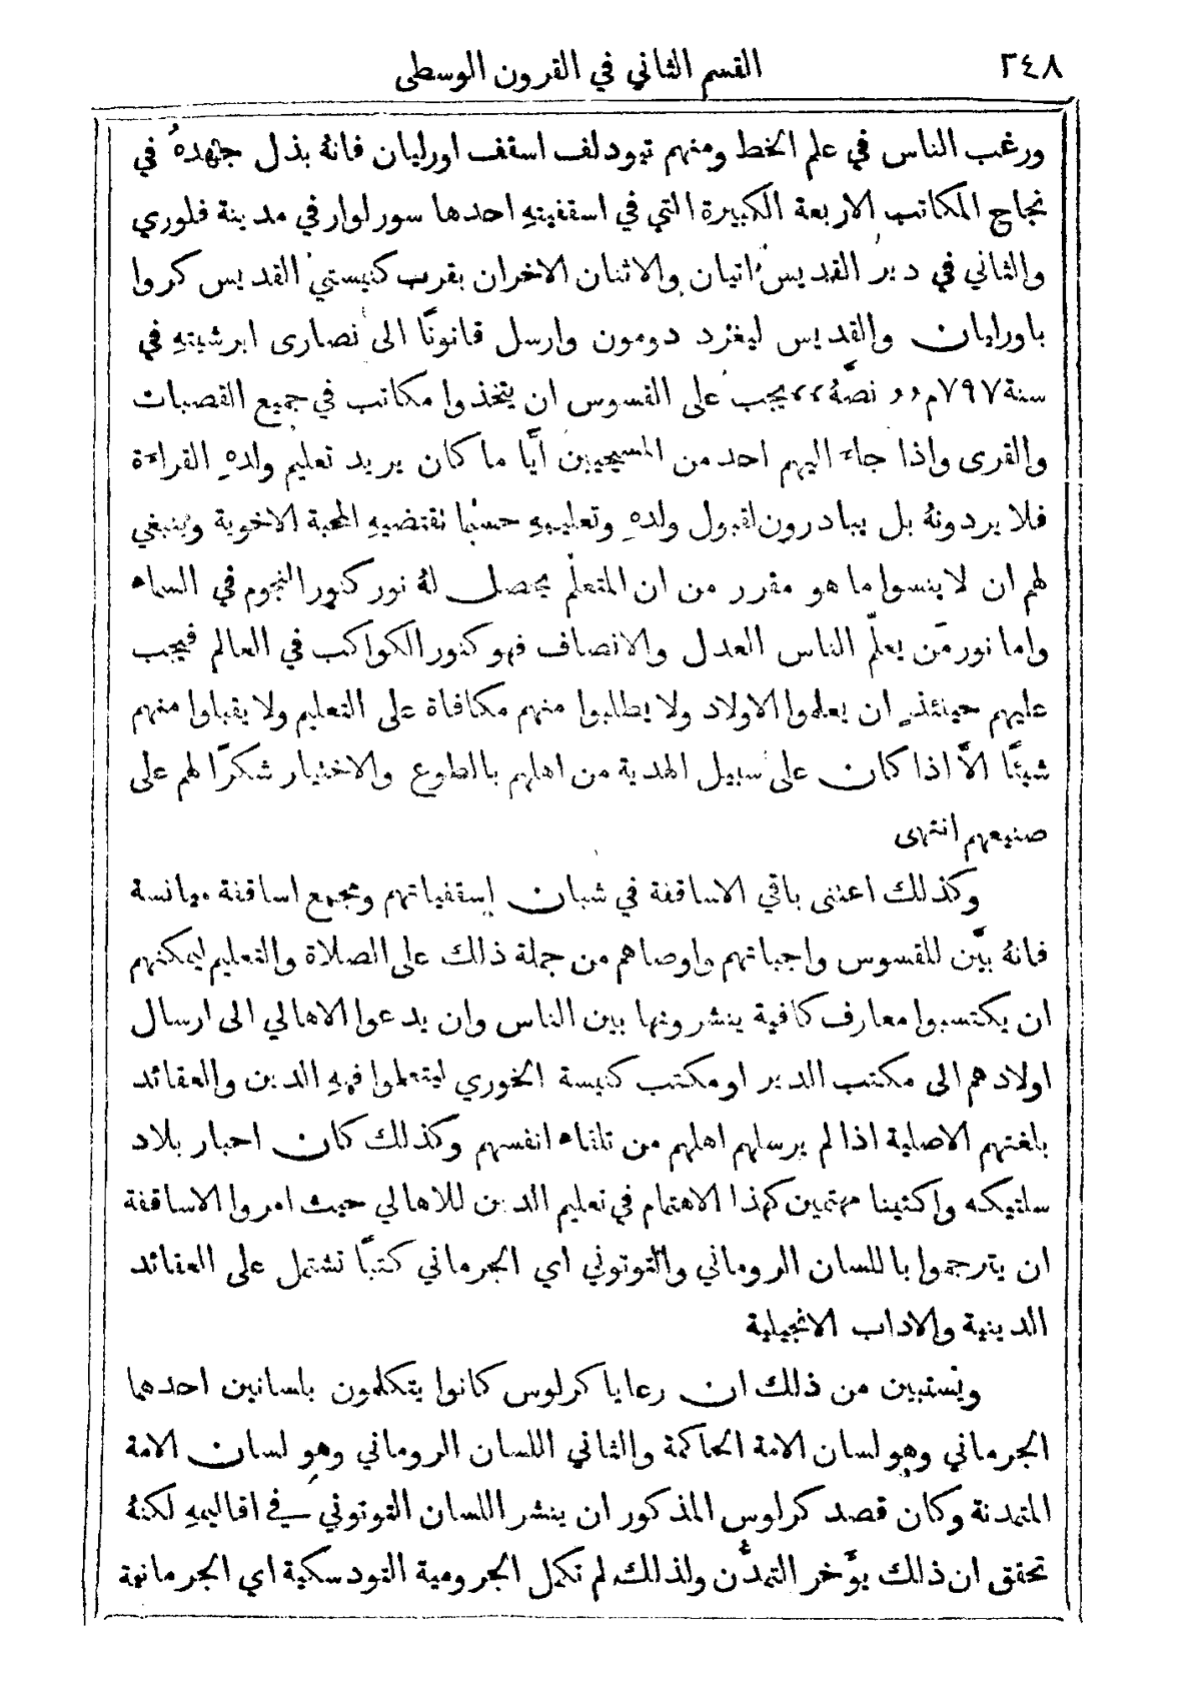 ٢٤٨
القسم الثاني في القرون الوسطى
ورغب الناس في علم الخط ومنهم تيودلف اسقف اورليان فانهُ بذل جهدهُ في
نجاح المكاتب الاربعة الكبيرة التي في اسقفيتهِ احدها سور لوار في مدينة فلوري
والثاني في دير القديس اتيان والاثنان الاخران بقرب كنيستي القديس كروا
باورليان والقديس ليفرد دومون وارسل قانونًا الى نصارى ابرشيتهِ في
سنة ٧٩٧م ,, نصَّهُ ،، يجب على القسوس ان يتخذوا مكاتب في جميع القصبات
والقرى واذا جاء اليهم احد من المسيحيين أيًّا ما كان يريد تعليم ولدهِ القراءة
فلا يردونهُ بل يبادرون لقبول ولدهِ وتعليمهِ حسبما تقتضيهِ المحبة الاخوية وينبغي
لهم ان لا ينسوا ما هو مقرر من ان المتعلّم يحصل لهُ نور كنور النجوم في السماء
واما نور مَن يعلّم الناس العدل والانصاف فهو كنور الكواكب في العالم فيجب
عليهم حينئذٍ ان يعلموا الاولاد ولا يطلبوا منهم مكافاة على التعليم ولا يقبلوا منهم
شيئًا الَّا اذا كان على سبيل الهدية من اهلهم بالطوع والاختيار شكرًا لهم على
صنيعهم انتهى
وكذلك اعتنى باقي الاساقفة في شبان إسقفياتهم ومجمع اساقفة ميانسة
فانهُ بيَّن للقسوس واجباتهم واوصاهم من جملة ذلك على الصلاة والتعليم ليمكنهم
ان يكتسبوا معارف كافية ينشرونها بين الناس وان يدعوا الاهالي الى ارسال
اولادهم الى مكتب الدير او مكتب كنيسة الخوري ليتعلموا فيهِ الدين والعقائد
بلغتهم الاصلية اذا لم يرسلهم اهلهم من تلقاء انفسهم وكذلك كان احبار بلاد
سلتيكه واكتينا مهتمين كهذا الاهتمام في تعليم الدين للاهالي حيث امروا الاساقفة
ان يترجموا باللسان الروماني والتوتوني اي الجرماني كتبًا تشتمل على العقائد
الدينية والاداب الانجيلية
ويستبين من ذلك ان رعايا كرلوس كانوا يتكلمون بلسانين احدهما
الجرماني وهو لسان الامة الحاكمة والثاني اللسان الروماني وهو لسان الامة
المتمدنة وكان قصد كرلوس المذكور ان ينشر اللسان التوتوني في اقاليمهِ لكنهُ
تحقق ان ذلك يؤَخر التمدُّن ولذلك لم تكمل الجرومية التودسكية اي الجرمانية